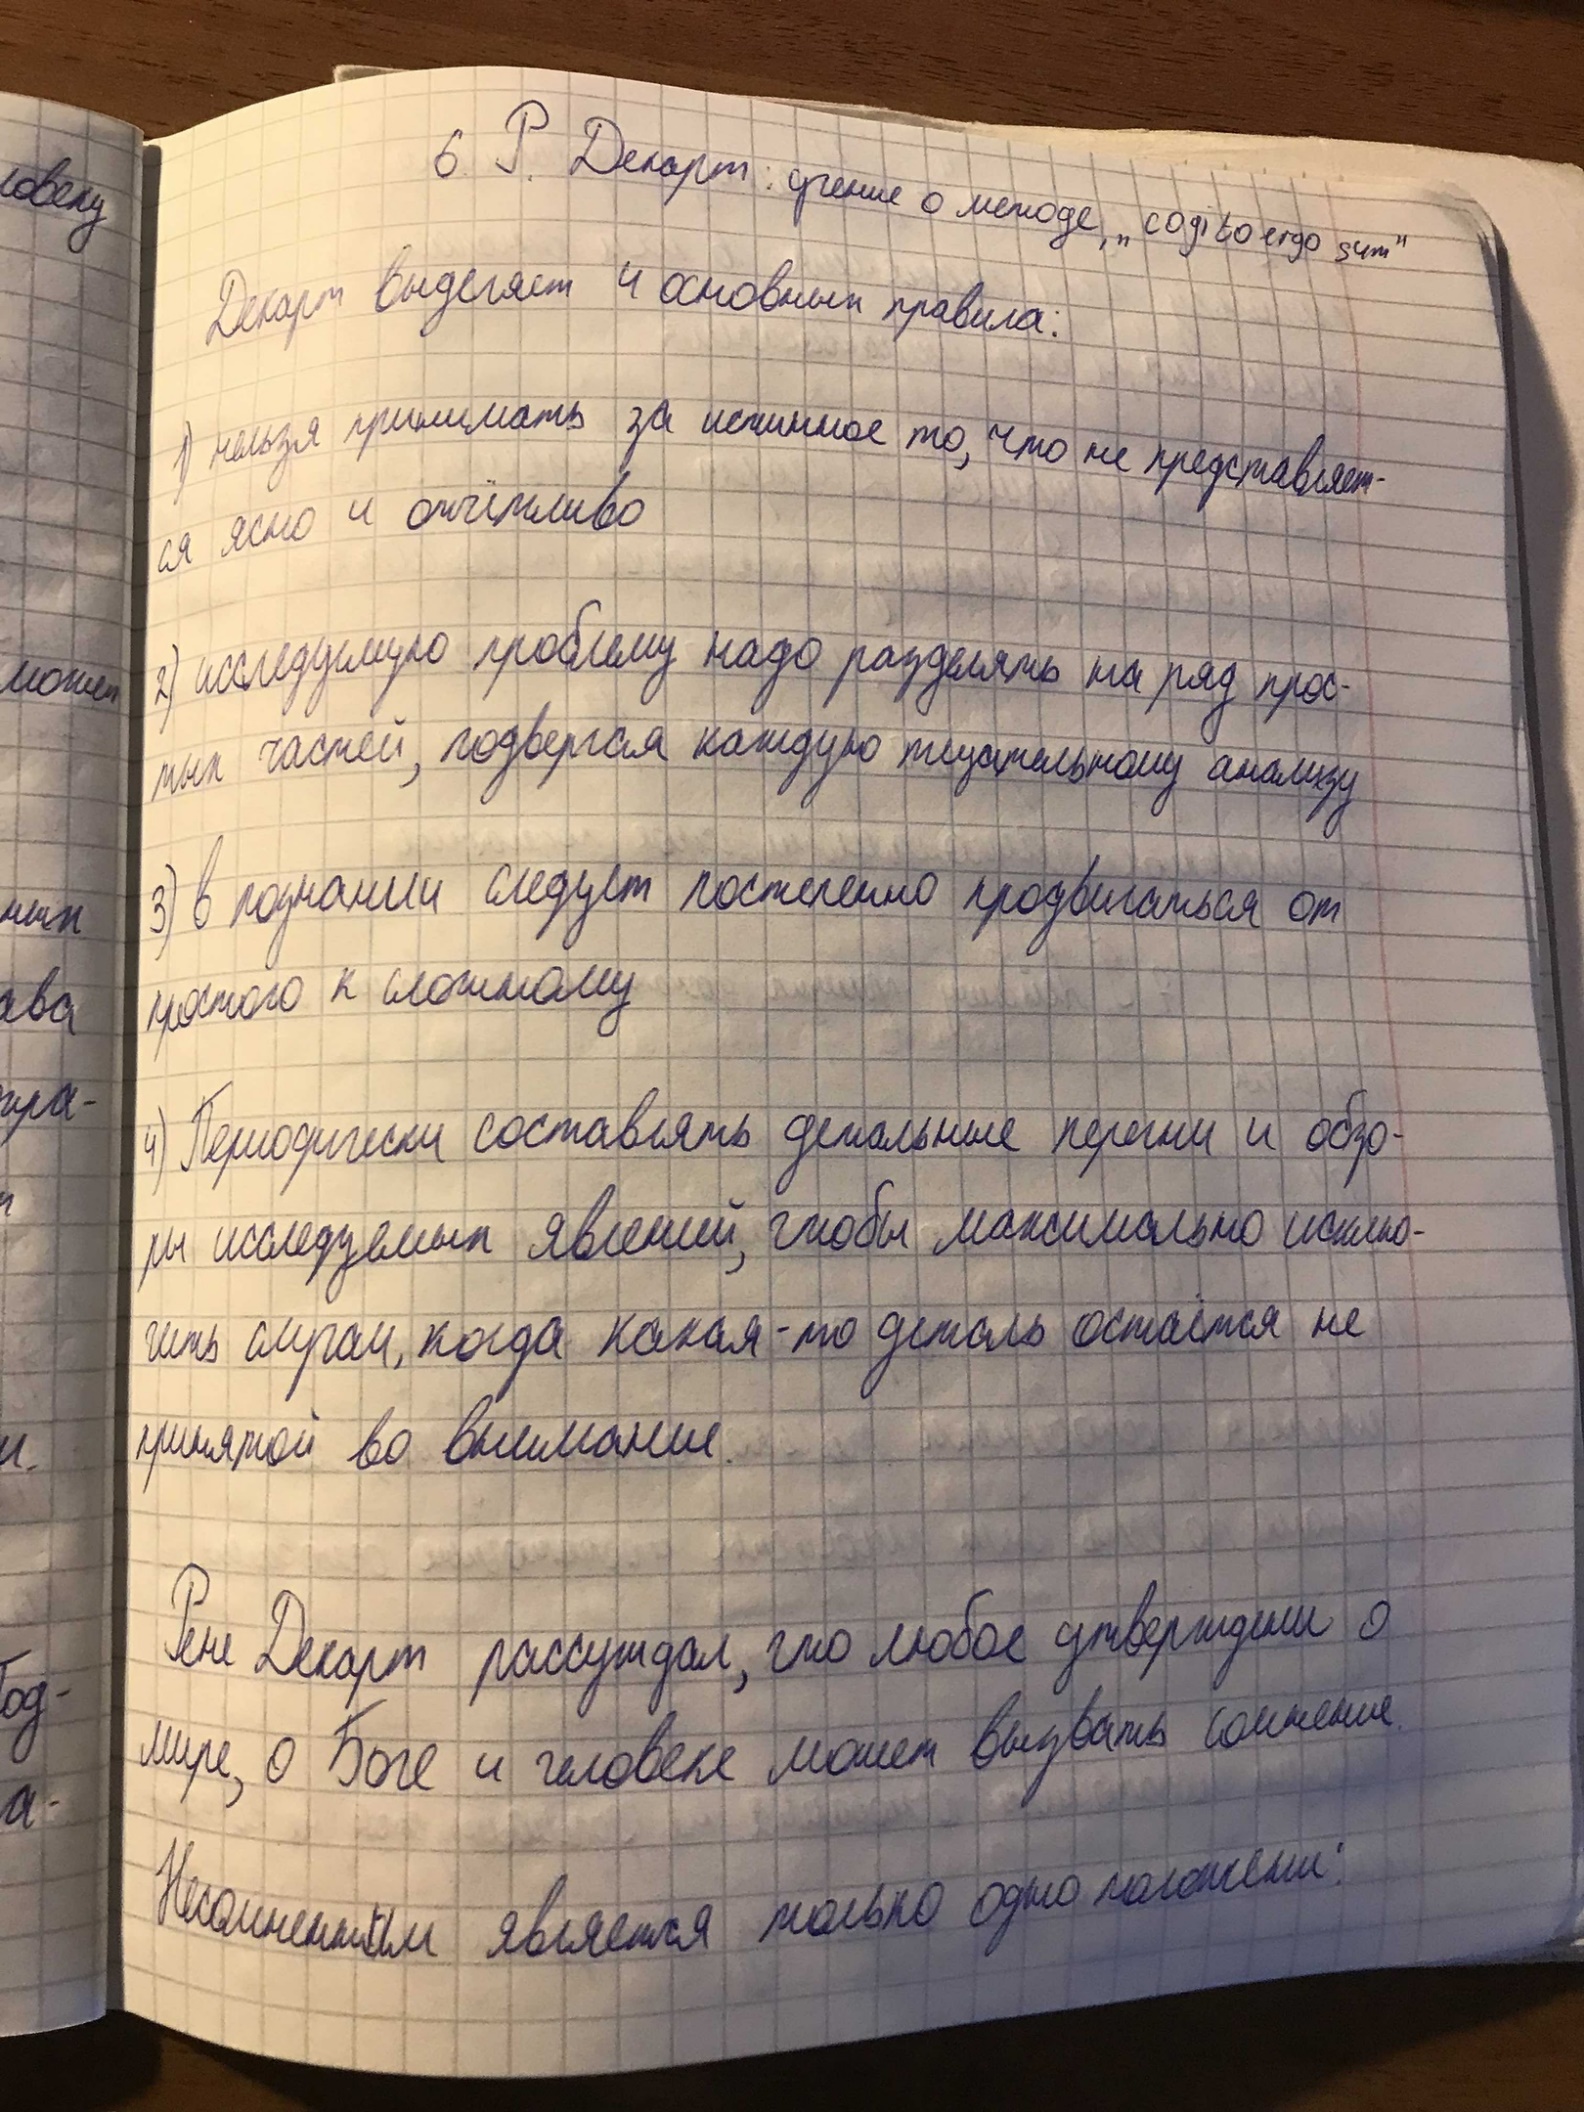 6. Р. Декарт: учение о методе, „cogito ergo sum"
Декарт выделяет 4 основных правила:
1) нельзя принимать за истинное то, что не представляет-
ся ясно и отчётливо
2) исследуемую проблему надо разделять на ряд прос-
тых частей, подвергая каждую тщательному анализу
3) в познании следует постепенно продвигаться от
простого к сложному
4) Периодически составлять детальные перечни и обзо-
ры исследуемых явлений, чтобы максимально исклю-
чить случаи, когда какая-то деталь остаётся не
принятой во внимание.
Рене Декарт рассуждал, что любое утверждени о
мире, о Боге и человеке может вызвать сомнение.
Несомненным является только одно положени:
ловеку
может
ных
ава
тра-
и.
Год-
а-